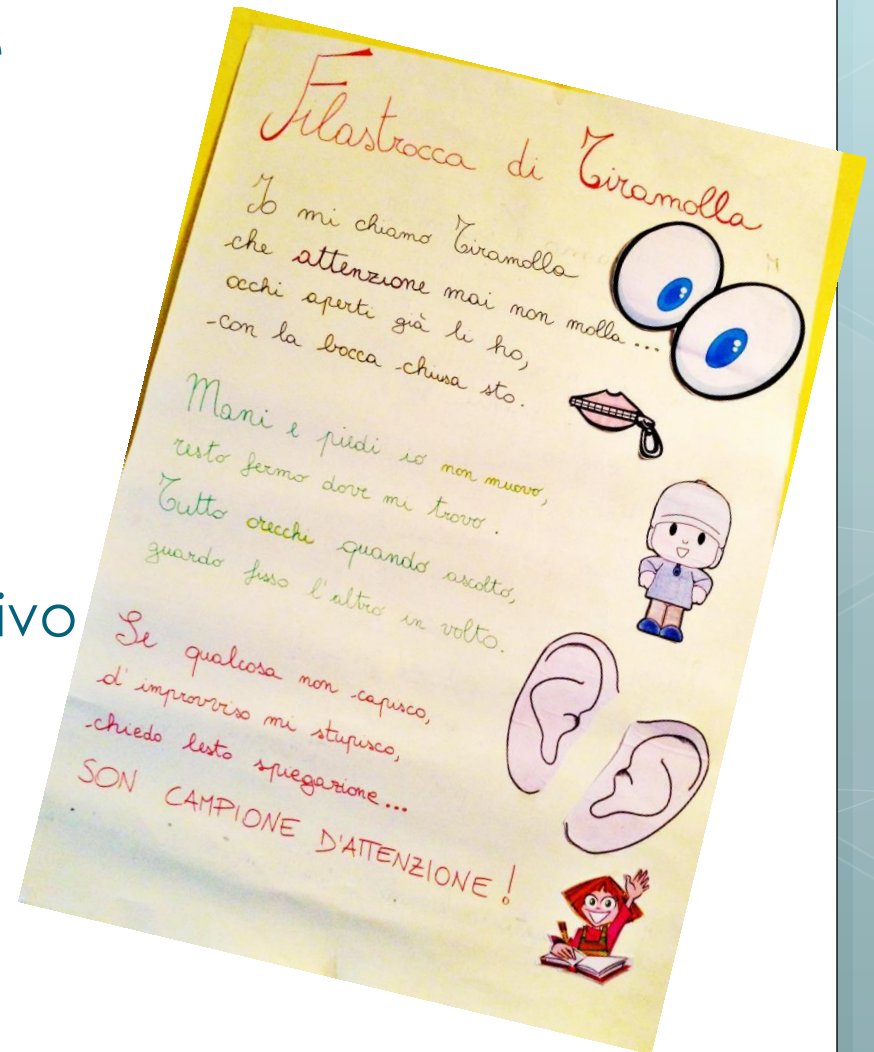 Filastrocca di Tiramolla
Io mi chiamo Tiramolla
che attenzione mai non molla...
occhi aperti già li ho,
con la bocca chiusa sto.
Mani e piedi io non muovo,
resto fermo dove mi trovo.
Tutto orecchi quando ascolto,
guardo fisso l'altro in volto.
ivo
Se qualcosa non capisco,
d'improvviso mi stupisco,
chiedo lesto spiegazione...
SON CAMPIONE D'ATTENZIONE!